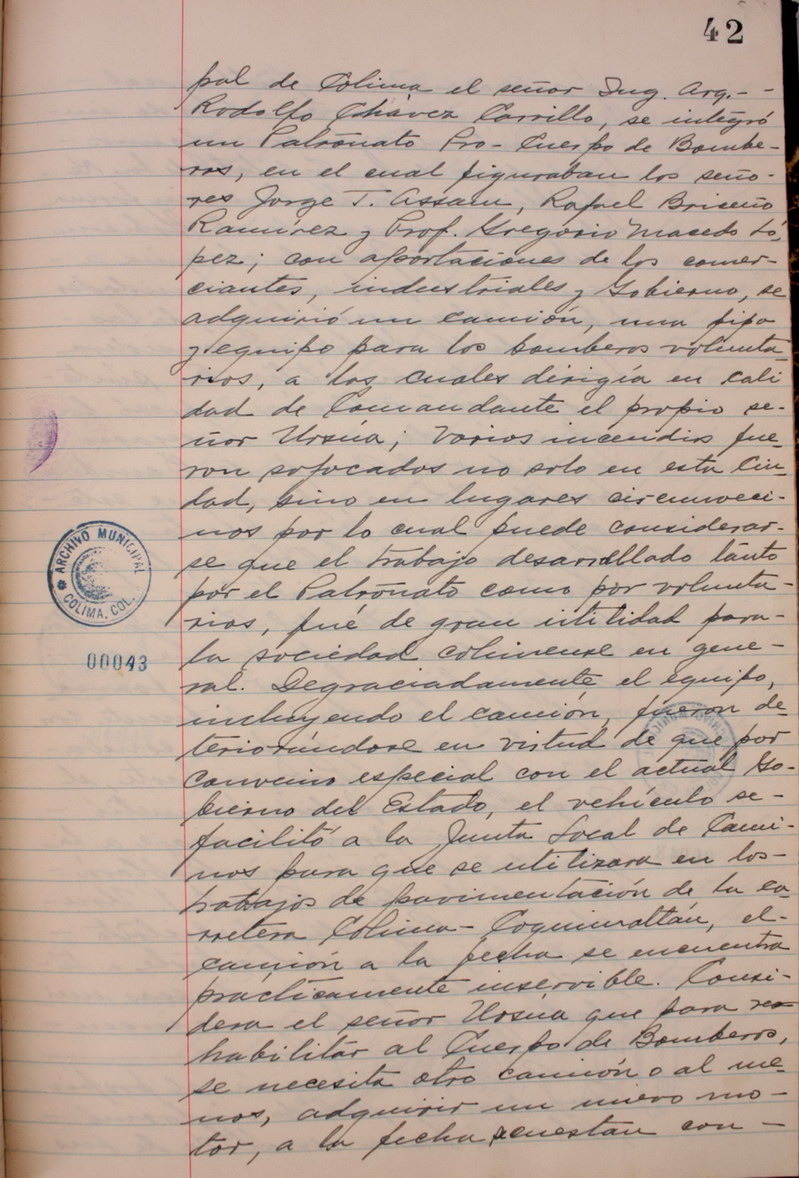 42
pal de Colima el señor Ing. Arq.- -
Rodolfo Chávez Carrillo, se integró
un Patronato Pro-Cuerpo de Bombe-
ros, en el cual figuraban los seño-
res Jorge T. Assam, Rafael Briseño
Ramírez y Prof. Gregorio Macedo Ló-
pez; con aportaciones de los comer-
ciantes, industriales y Gobierno, se
adquirió un camión, una pipa
y equipo para los bomberos volunta-
rios, a los cuales dirigía en cali
dad de Comandante el propio se-
ñor Ursúa; varios incendios fue-
ron sofocados no solo en esta Ciu-
dad, sino en lugares circunveci-
nos por lo cual puede considerar-
se que el trabajo desarrollado tanto
por el Patronato como por volunta-
rios, fué de gran utilidad para-
la sociedad colimense en gene-
ral. Degraciadamente el equipo,
incluyendo el camión, fueron de-
teriorándose en virtud de que por
convenio especial con el actual Go-
bierno del Estado, el vehículo se-
facilitó a la Junta Local de Cami-
nos para que se utilizara en los-
trabajos de pavimentación de la ca-
rretera Colima-Coquimatlán, el-
camión a la fecha se encuentra
practicamente inservible. Consi-
dera el señor Ursúa que para re-
habilitar al Cuerpo de Bomberos,
se necesita otro camión o al me-
nos, adquirir un nuevo mo-
tor, a la fecha cuestan con-
ARCHIVO MUNICIPAL
COLIMA, COL.
00043